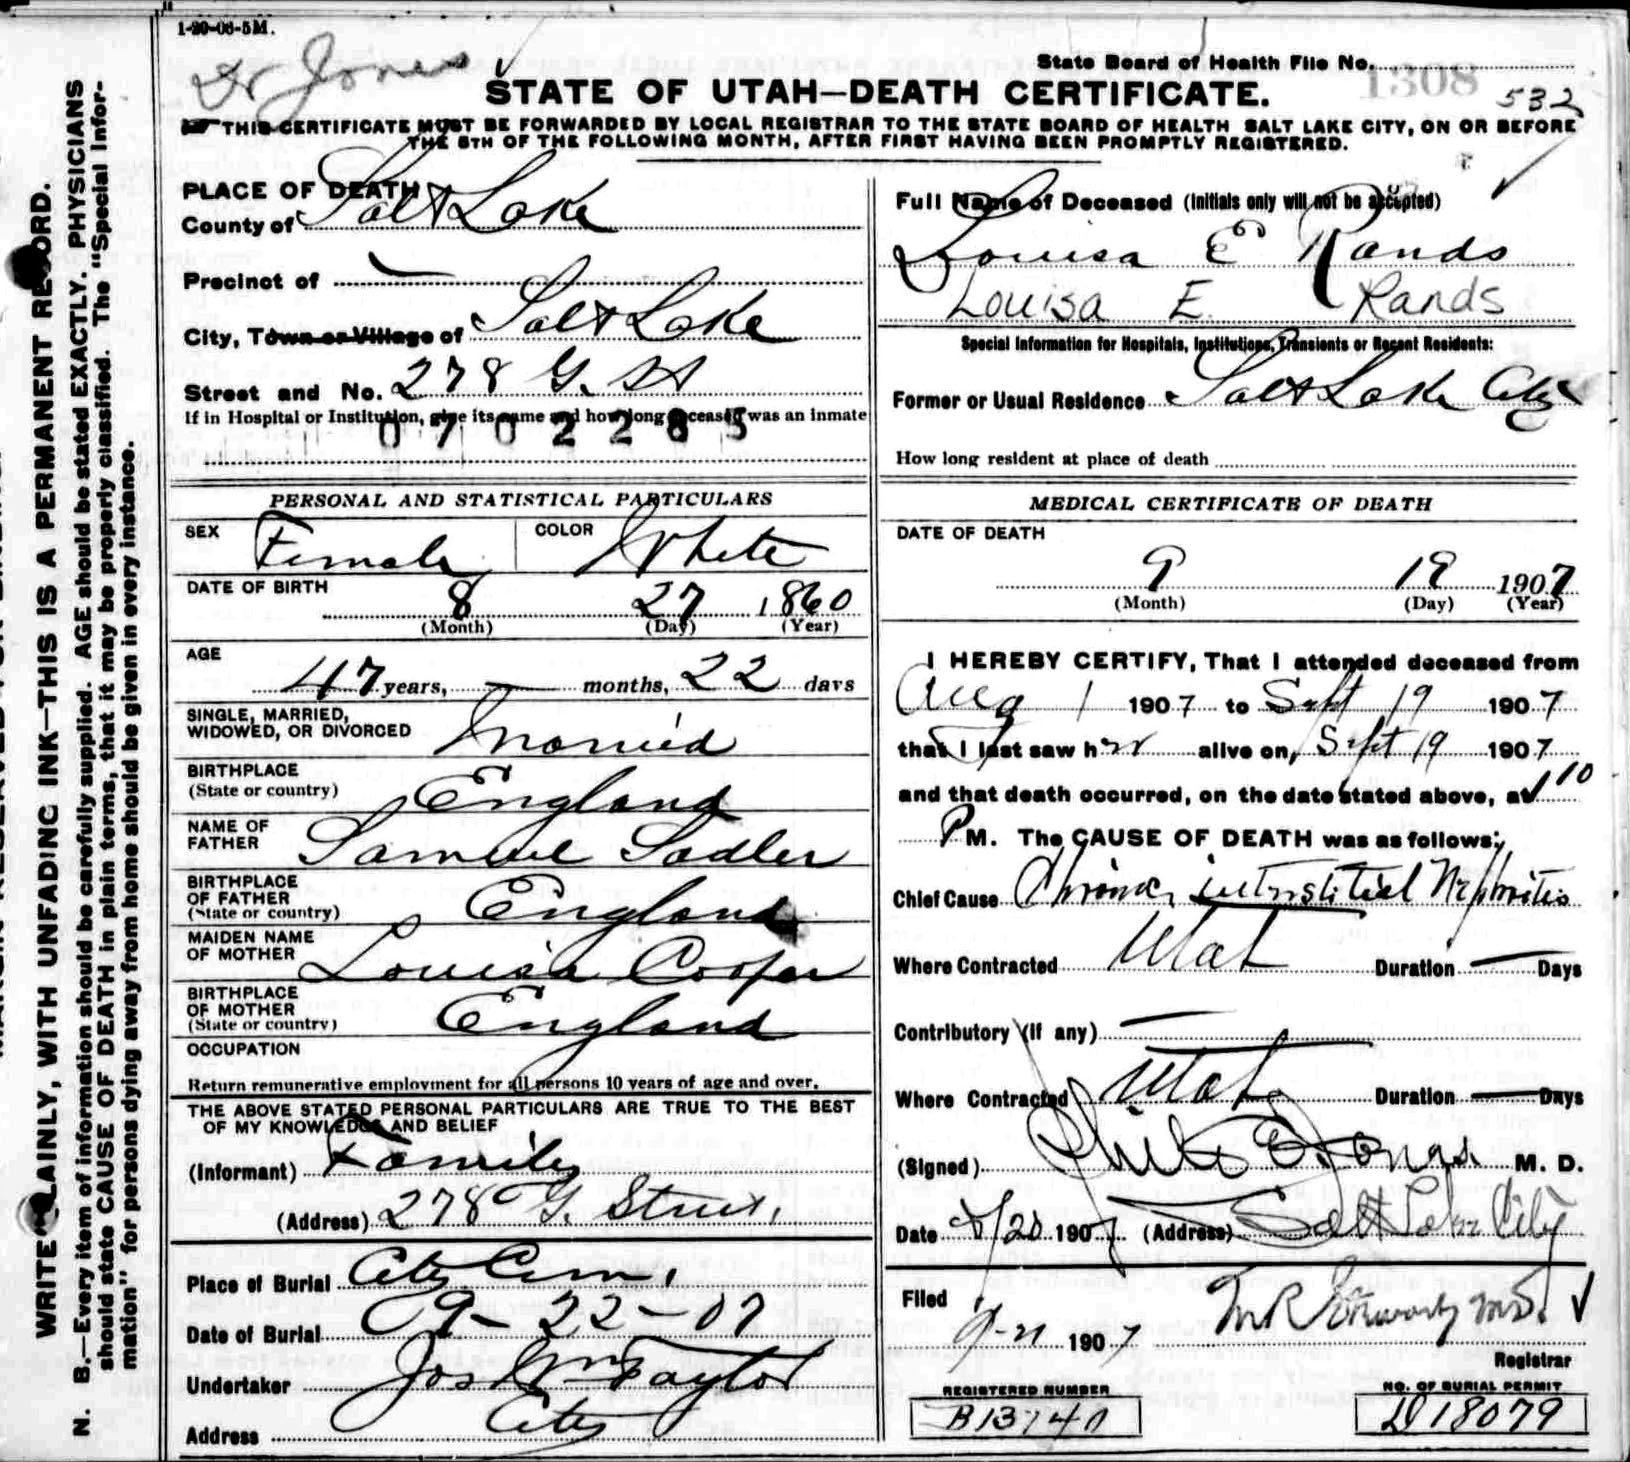 1-20-06-5M.
Dr Jones
State Board of Health File No. 1308
532
STATE OF UTAH—DEATH CERTIFICATE.
THIS CERTIFICATE MUST BE FORWARDED BY LOCAL REGISTRAR TO THE STATE BOARD OF HEALTH, SALT LAKE CITY, ON OR BEFORE
THE 5TH OF THE FOLLOWING MONTH, AFTER FIRST HAVING BEEN PROMPTLY REGISTERED.
WRITE PLAINLY, WITH UNFADING INK—THIS IS A PERMANENT RECORD.
N. B.—Every item of information should be carefully supplied. AGE should be stated EXACTLY. PHYSICIANS
should state CAUSE OF DEATH in plain terms, that it may be properly classified. The "Special Infor-
mation" for persons dying away from home should be given in every instance.
PLACE OF DEATH
County of Salt Lake
Precinct of —
City, Town or Village of Salt Lake
Street and No. 278 G. St
If in Hospital or Institution, give its name and how long deceased was an inmate
0702285
PERSONAL AND STATISTICAL PARTICULARS
SEX Female COLOR White
DATE OF BIRTH
8 27 1860
(Month) (Day) (Year)
AGE
47 years, — months, 22 days
SINGLE, MARRIED,
WIDOWED, OR DIVORCED Married
BIRTHPLACE
(State or country) England
NAME OF
FATHER Samuel Sadler
BIRTHPLACE
OF FATHER
(State or country) England
MAIDEN NAME
OF MOTHER Louisa Cooper
BIRTHPLACE
OF MOTHER
(State or country) England
OCCUPATION
Return remunerative employment for all persons 10 years of age and over.
THE ABOVE STATED PERSONAL PARTICULARS ARE TRUE TO THE BEST
OF MY KNOWLEDGE AND BELIEF
(Informant) Family
(Address) 278 G. Street.
Place of Burial City Cem.
Date of Burial 9-22-07
Undertaker Jos Wm Taylor
Address City
Full Name of Deceased (Initials only will not be accepted)
Louisa E Rands
Louisa E. Rands
Special Information for Hospitals, Institutions, Transients or Recent Residents:
Former or Usual Residence Salt Lake City
How long resident at place of death
MEDICAL CERTIFICATE OF DEATH
DATE OF DEATH
9 19 1907
(Month) (Day) (Year)
I HEREBY CERTIFY, That I attended deceased from
Aug 1 1907 to Sept 19 1907
that I last saw her alive on, Sept 19 1907
and that death occurred, on the date stated above, at 1 10
P M. The CAUSE OF DEATH was as follows:
Chief Cause Chronic interstitial Nephritis
Where Contracted Utah Duration — Days
Contributory (if any) —
Where Contracted Utah Duration — Days
(Signed) Philo E Jones M. D.
Date 9/20 1907 (Address) Salt Lake City
Filed
9-21 1907
Registrar
REGISTERED NUMBER
B13740
NO. OF BURIAL PERMIT
D18079